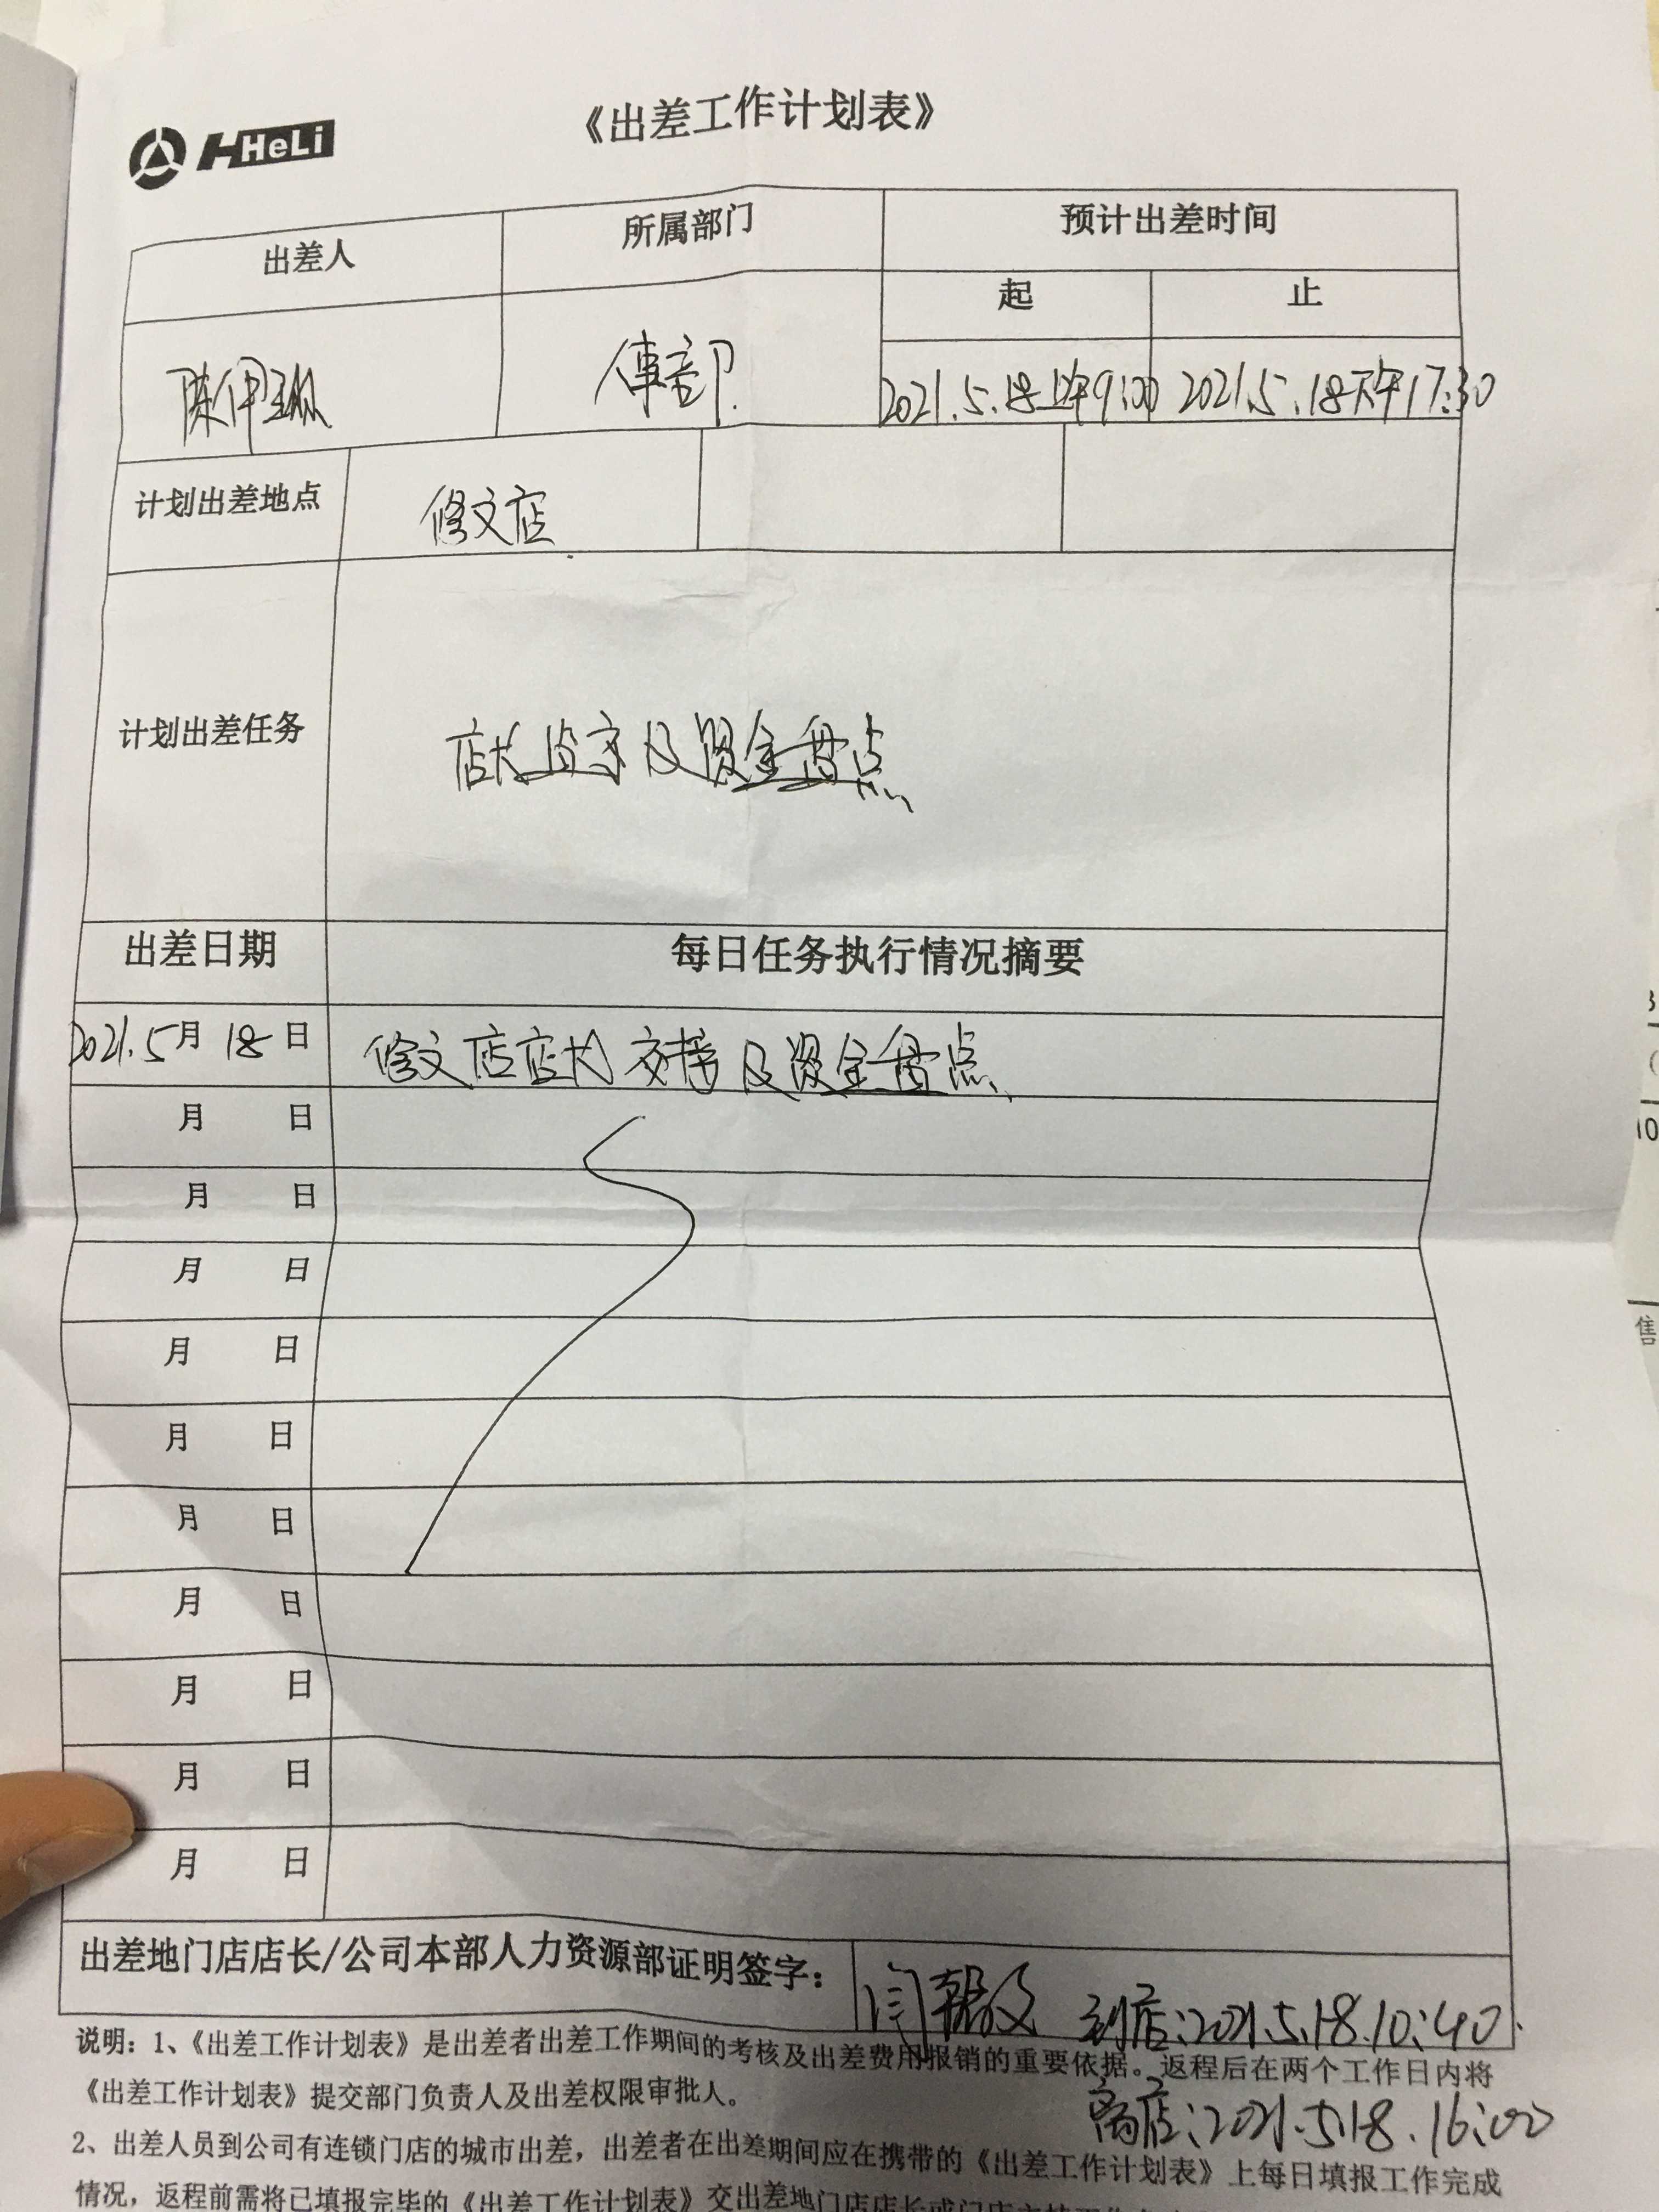 《出差工作计划表》
HHeLi
出差人 所属部门 预计出差时间
起 止
陈伊琳 事部 2021.5.18上午9:00 2021.5.18下午17:30
计划出差地点 修文店
计划出差任务 店长监交及资金盘点
出差日期 每日任务执行情况摘要
2021.5月18日 修文店店长交接及资金盘点
月 日
月 日
月 日
月 日
月 日
月 日
月 日
月 日
月 日
月 日
出差地门店店长/公司本部人力资源部证明签字: 闫 到店:2021.5.18.10:40.
说明:1、《出差工作计划表》是出差者出差工作期间的考核及出差费用报销的重要依据。返程后在两个工作日内将
《出差工作计划表》提交部门负责人及出差权限审批人。
离店:2021.5.18.16:00
2、出差人员到公司有连锁门店的城市出差,出差者在出差期间应在携带的《出差工作计划表》上每日填报工作完成
情况,返程前需将已填报完毕的《出差工作计划表》交出差地门店店长或门店
售